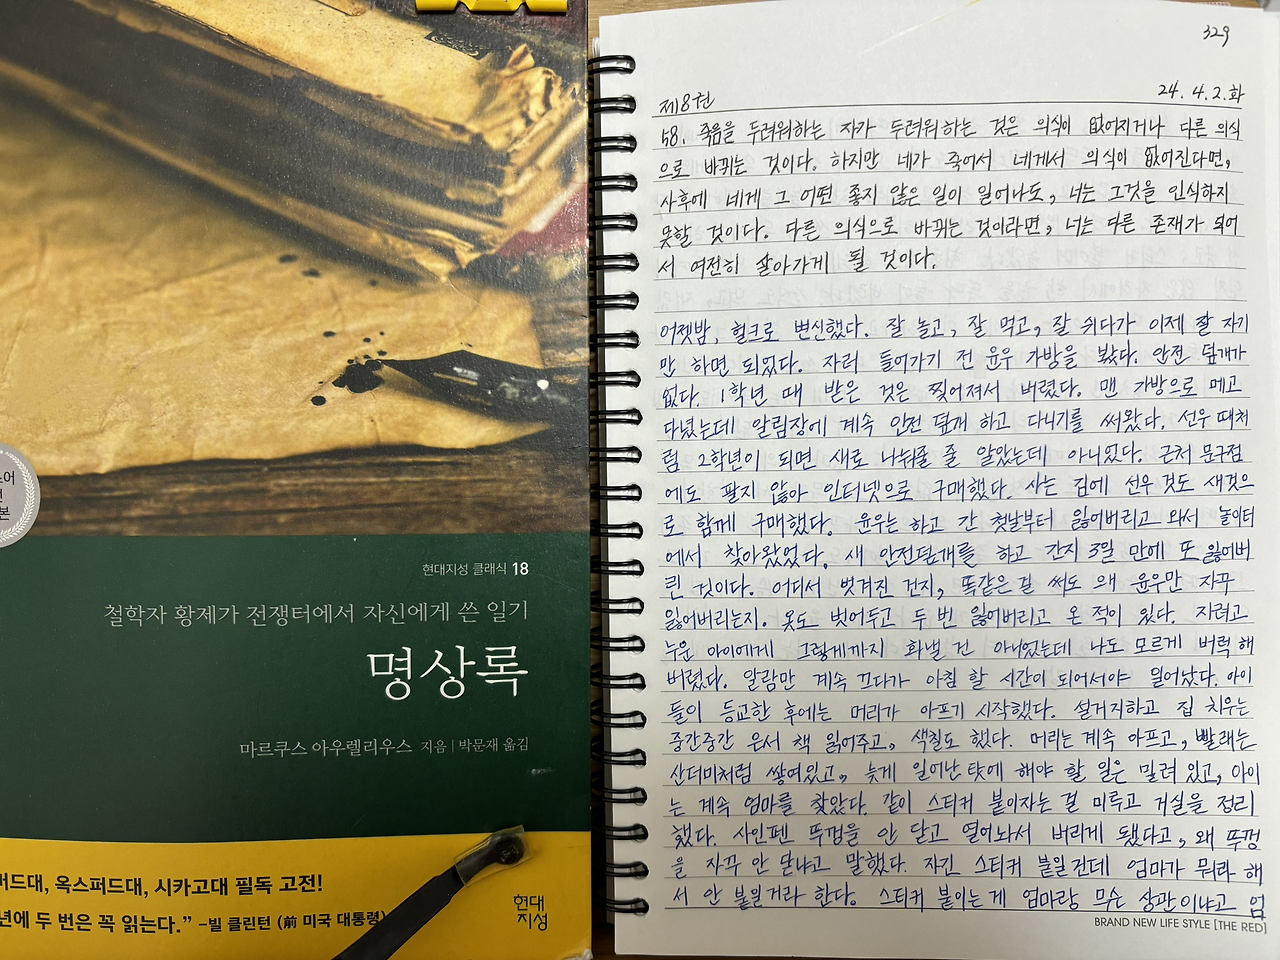 스어
전
본
현대지성 클래식 18
철학자 황제가 전쟁터에서 자신에게 쓴 일기
명상록
마르쿠스 아우렐리우스 지음 | 박문재 옮김
버드대, 옥스퍼드대, 시카고대 필독 고전!
년에 두 번은 꼭 읽는다.” –빌 클린턴 (前 미국 대통령)
현대
지성
329
제8권 24. 4. 2. 화
58. 죽음을 두려워하는 자가 두려워하는 것은 의식이 없어지거나 다른 의식
으로 바뀌는 것이다. 하지만 네가 죽어서 네게서 의식이 없어진다면,
사후에 네게 그 어떤 좋지 않은 일이 일어나도, 너는 그것을 인식하지
못할 것이다. 다른 의식으로 바뀌는 것이라면, 너는 다른 존재가 되어
서 여전히 살아가게 될 것이다.
어젯밤, 헐크로 변신했다. 잘 놀고, 잘 먹고, 잘 쉬다가 이제 잘 자기
만 하면 되었다. 자러 들어가기 전 윤우 가방을 봤다. 안전 덮개가
없다. 1학년 때 받은 것은 찢어져서 버렸다. 맨 가방으로 메고
다녔는데 알림장에 계속 안전 덮개 하고 다니기를 써왔다. 선우 때처
럼 2학년이 되면 새로 나눠줄 줄 알았는데 아니었다. 근처 문구점
에도 팔지 않아 인터넷으로 구매했다. 사는 김에 선우 것도 새것으
로 함께 구매했다. 윤우는 하고 간 첫날부터 잃어버리고 와서 놀이터
에서 찾아왔었다. 새 안전덮개를 하고 간지 3일 만에 또 잃어버
린 것이다. 어디서 벗겨진 건지, 똑같은 걸 써도 왜 윤우만 자꾸
잃어버리는지. 옷도 벗어두고 두 번 잃어버리고 온 적이 있다. 자려고
누운 아이에게 그렇게까지 화낼 건 아니었는데 나도 모르게 버럭 해
버렸다. 알람만 계속 끄다가 아침 할 시간이 되어서야 일어났다. 아이
들이 등교한 후에는 머리가 아프기 시작했다. 설거지하고 집 치우는
중간중간 은서 책 읽어주고, 색칠도 했다. 머리는 계속 아프고, 빨래는
산더미처럼 쌓여있고, 늦게 일어난 탓에 해야 할 일은 밀려 있고, 아이
는 계속 엄마를 찾았다. 같이 스티커 붙이자는 걸 미루고 거실을 정리
했다. 사인펜 뚜껑을 안 닫고 열어놔서 버리게 됐다고, 왜 뚜껑
을 자꾸 안 닫냐고 말했다. 자긴 스티커 붙일건데 엄마가 뭐라 해
서 안 붙일거라 한다. 스티커 붙이는 게 엄마랑 무슨 상관이냐고 엄
BRAND NEW LIFE STYLE [THE RED]